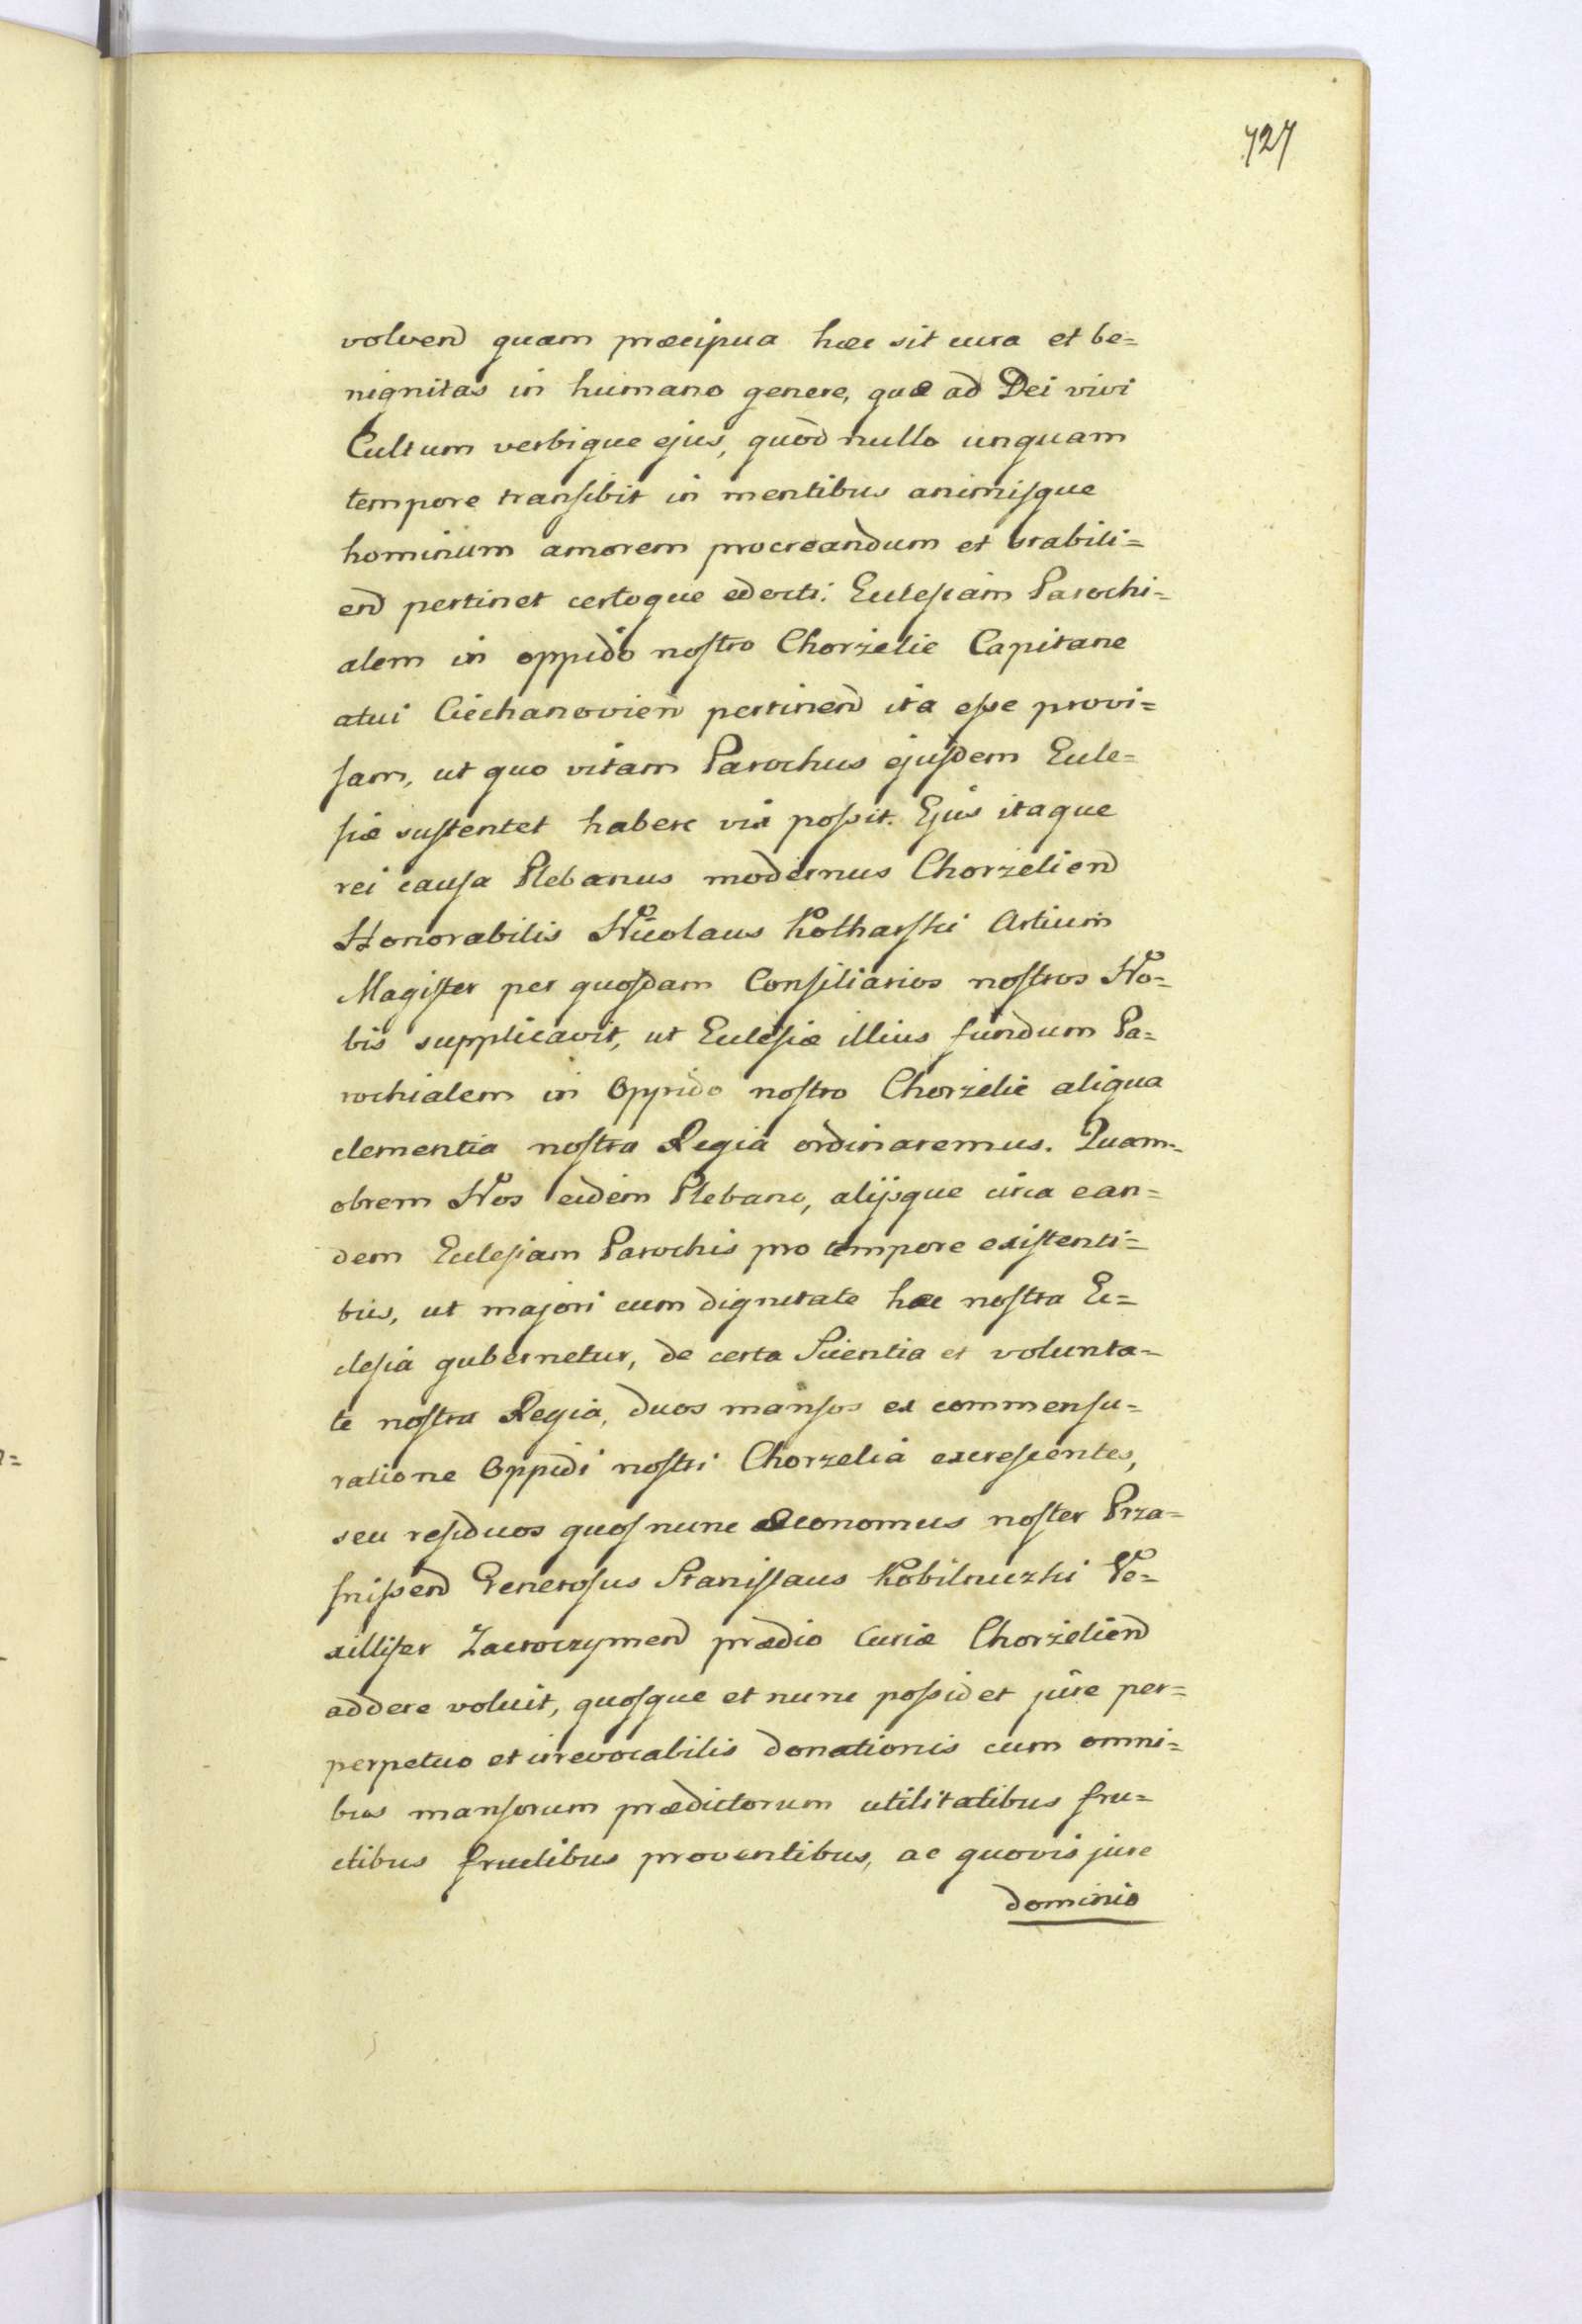 727
volvend quam præcipua hæc sit cura et be=
nignitas in humano genere, quæ ad Dei vivi
Cultum verbique ejus, quod nullo unquam
tempore transibit in mentibus animisque
hominum amorem procreandum et stabili=
end pertinet certoque edocti: Ecclesiam Parochi=
alem in oppido nostro Chorzelie Capitane
atui Ciechanovien pertinend ita esse provi=
sam, ut quo vitam Parochus ejusdem Eccle=
siæ sustentet habere vix possit. Ejus itaque
rei causa Plebanus modernus Chorzeliend
Honorabilis Nicolaus Kotharski Artium
Magister per quosdam Consiliarios nostros No=
bis supplicavit, ut Ecclesiæ illius fundum Pa=
rochialem in Oppido nostro Chorzelie aliqua
clementia nostra Regia ordinaremus. Quam=
obrem Nos eidem Plebano, alijsque circa ean=
dem Ecclesiam Parochis pro tempore existenti=
bus, ut majori cum dignitate hæc nostra Ec=
clesia gubernetur, de certa Scientia et volunta=
te nostra Regia, duos mansos ex commensu=
ratione Oppidi nostri Chorzelia excrescentes,
seu residuos quos nunc Œconomus noster Prza=
snissend Generosus Stanislaus Kobilnuzki Ve=
xillifer Zacroczymend prædio Curiæ Chorzeliend
addere voluit, quosque et nunc possidet jure per=
perpetuo et irrevocabilis donationis cum omni=
bus mansorum prædictorum utilitatibus fru=
ctibus fructibus proventibus, ac quovis jure
dominio